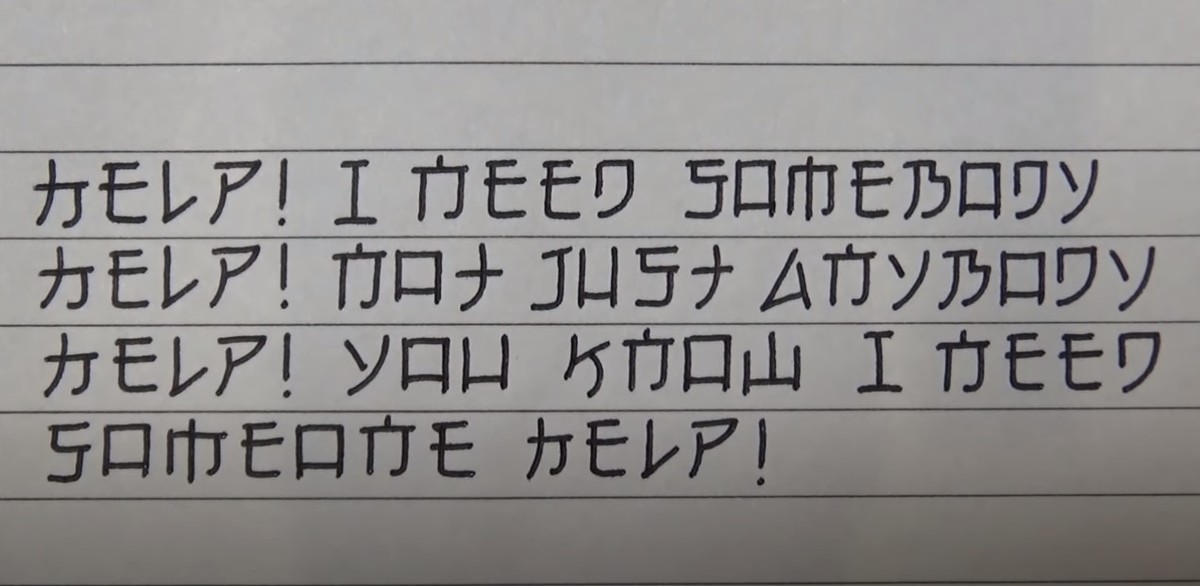 HELP! I NEED SOMEBODY
HELP! NOT JUST ANYBODY
HELP! YOU KNOW I NEED
SOMEONE HELP!